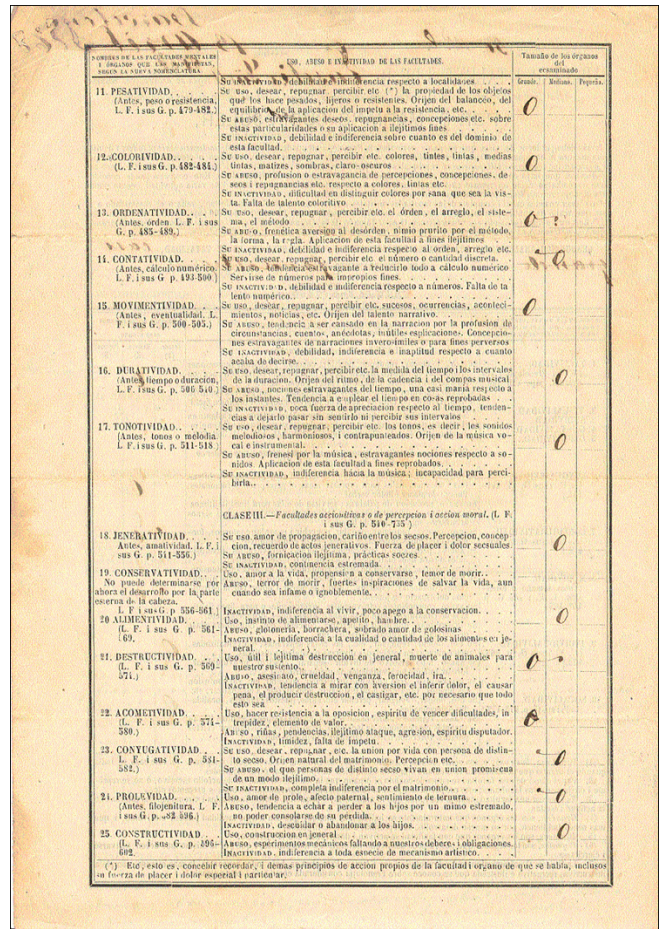 NOMBRES DE LAS FACULTADES MENTALES
I ÓRGANOS QUE LAS MANIFIESTAN,
SEGUN LA NUEVA NOMENCLATURA.
USO, ABUSO E INACTIVIDAD DE LAS FACULTADES.
Tamaño de los órganos
del
ecsaminado
Grande. Mediano. Pequeño.
Su INACTIVIDAD, debilidad e indiferencia respecto a localidades.
11. PESATIVIDAD.
(Antes, peso o resistencia,
L. F. i sus G. p. 479-482.)
Su uso, desear, repugnar, percibir etc. (*) la propiedad de los objetos
que los hace pesados, lijeros o resistentes. Oríjen del balanceo, del
equilibrio, de la aplicacion del ímpetu a la resistencia, etc.
Su ABUSO, estravagantes deseos, repugnancias, concepciones etc. sobre
estas particularidades o su aplicacion a ilejítimos fines
Su INACTIVIDAD, debilidad e indiferencia sobre cuanto es del dominio de
esta facultad.
O
12. COLORIVIDAD.
(L. F. i sus G. p. 482-484.)
Su uso, desear, repugnar, percibir etc. colores, tintes, tintas, medias
tintas, matizes, sombras, claro-oscuros
Su ABUSO, profusion o estravagancia de percepciones, concepciones, de-
seos i repugnancias etc. respecto a colores, tintas etc.
Su INACTIVIDAD, dificultad en distinguir colores por sana que sea la vis-
ta. Falta de talento coloritivo
O
13. ORDENATIVIDAD.
(Antes, órden. L. F. i sus
G. p. 485-489.)
Su uso, desear, repugnar, percibir etc. el órden, el arreglo, el siste-
ma, el método
Su ABUSO, frenética aversion al desórden, nimio prurito por el método,
la forma, la regla. Aplicacion de esta facultad a fines ilejítimos
Su INACTIVIDAD, debilidad e indiferencia respecto al órden, arreglo etc.
O
14. CONTATIVIDAD.
(Antes, cálculo numérico.
L. F. i sus G. p. 493-500.)
Su uso, desear, repugnar, percibir etc. el número o cantidad discreta.
Su ABUSO, tendencia estravagante a reducirlo todo a cálculo numérico
Servirse de números para impropios fines.
Su INACTIVIDAD, debilidad e indiferencia respecto a números. Falta de ta
lento numérico.
O
15. MOVIMENTIVIDAD.
(Antes, eventualidad. L.
F. i sus G. p. 500-505.)
Su uso, desear, repugnar, percibir etc. sucesos, ocurrencias, aconteci-
mientos, noticias, etc. Oríjen del talento narrativo.
Su ABUSO, tendencia a ser cansado en la narracion por la profusion de
circunstancias, cuentos, anécdotas, inútiles esplicaciones. Concepcio-
nes estravagantes de narraciones inverosímiles o para fines perversos
Su INACTIVIDAD, debilidad, indiferencia e inaptitud respecto a cuanto
acaba de decirse.
O
16. DURATIVIDAD.
(Antes, tiempo o duracion,
L. F. i sus G. p. 506-510.)
Su uso, desear, repugnar, percibir etc. la medida del tiempo i los intervalos
de la duracion. Oríjen del ritmo, de la cadencia i del compas musical.
Su ABUSO, nociones estravagantes del tiempo, una casi manía respecto a
los instantes. Tendencia a emplear el tiempo en cosas reprobadas
Su INACTIVIDAD, poca fuerza de apreciacion respecto al tiempo, tenden-
cias a dejarlo pasar sin sentirlo ni percibir sus intervalos
O
17. TONOTIVIDAD.
(Antes, tonos o melodía.
L. F. i sus G. p. 511-518.)
Su uso, desear, repugnar, percibir etc. los tonos, es decir, los sonidos
melodiosos, harmoniosos, i contrapunteados. Oríjen de la música vo-
cal e instrumental.
Su ABUSO, frenesí por la música, estravagantes nociones respecto a so-
nidos. Aplicacion de esta facultad a fines reprobados.
Su INACTIVIDAD, indiferencia hácia la música; incapacidad para perci-
birla.
O
CLASE III.—Facultades accionitivas o de percepcion i accion moral. (L. F.
i sus G. p. 510-755)
18. JENERATIVIDAD.
Antes, amatividad. L. F. i
sus G. p. 511-556.)
Su uso, amor de propagacion, cariño entre los secsos. Percepcion, concep
cion, recuerdo de actos jenerativos. Fuerza de placer i dolor secsuales.
Su ABUSO, fornicacion ilejítima, prácticas soeces.
Su INACTIVIDAD, continencia estremada.
O
19. CONSERVATIVIDAD.
No puede determinarse por
ahora el desarrollo por la parte
esterna de la cabeza.
L. F. i sus G. p. 556-561.)
Uso, amor a la vida, propension a conservarse, temor de morir.
ABUSO, terror de morir, fuertes inspiraciones de salvar la vida, aun
cuando sea infame o ignoblemente.
INACTIVIDAD, indiferencia al vivir, poco apego a la conservacion.
20 ALIMENTIVIDAD.
(L. F. i sus G. p. 561-
569.
Uso, instinto de alimentarse, apetito, hambre.
ABUSO, glotonería, borrachera, sobrado amor de golosinas
INACTIVIDAD, indiferencia a la cualidad o cantidad de los alimentos en je-
neral.
O
21. DESTRUCTIVIDAD.
(L. F. i sus G. p. 569-
571.)
Uso, útil i lejítima destruccion en jeneral, muerte de animales para
nuestro sustento.
ABUSO, asesinato, crueldad, venganza, ferocidad, ira.
INACTIVIDAD, tendencia a mirar con aversion el inferir dolor, el causar
pena, el producir destruccion, el castigar, etc. por necesario que todo
esto sea
O
22. ACOMETIVIDAD.
(L. F. i sus G. p. 571-
580.)
Uso, hacer resistencia a la oposicion, espíritu de vencer dificultades, in
trepidez, elemento de valor.
ABUSO, riñas, pendencias, ilejítimo ataque, agresion, espíritu disputador.
INACTIVIDAD, timidez, falta de ímpetu.
O
23. CONYUGATIVIDAD.
(L. F. i sus G. p. 581-
582.)
Su uso, desear, repugnar, etc. la union por vida con persona de distin-
to secso. Oríjen natural del matrimonio. Percepcion etc.
Su ABUSO, el que personas de distinto secso vivan en union promiscua
de un modo ilejítimo.
Su INACTIVIDAD, completa indiferencia por el matrimonio.
O
24. PROLEVIDAD.
(Antes, filojenitura. L. F.
i sus G. p. 582-596.)
Uso, amor de prole, afecto paternal, sentimiento de ternura.
ABUSO, tendencia a echar a perder a los hijos por un mimo estremado,
no poder consolarse de su pérdida.
INACTIVIDAD, descuidar o abandonar a los hijos.
O
25. CONSTRUCTIVIDAD
(L. F. i sus G. p. 596-
602.
Uso, construccion en jeneral
ABUSO, esperimentos mecánicos faltando a nuestros deberes i obligaciones.
INACTIVIDAD, indiferencia a toda especie de mecanismo artístico.
O
(*) Etc, esto es, concebir recordar, i demas principios de accion propios de la facultad i órgano de que se habla, inclusos
su fuerza de placer i dolor especial i particular.